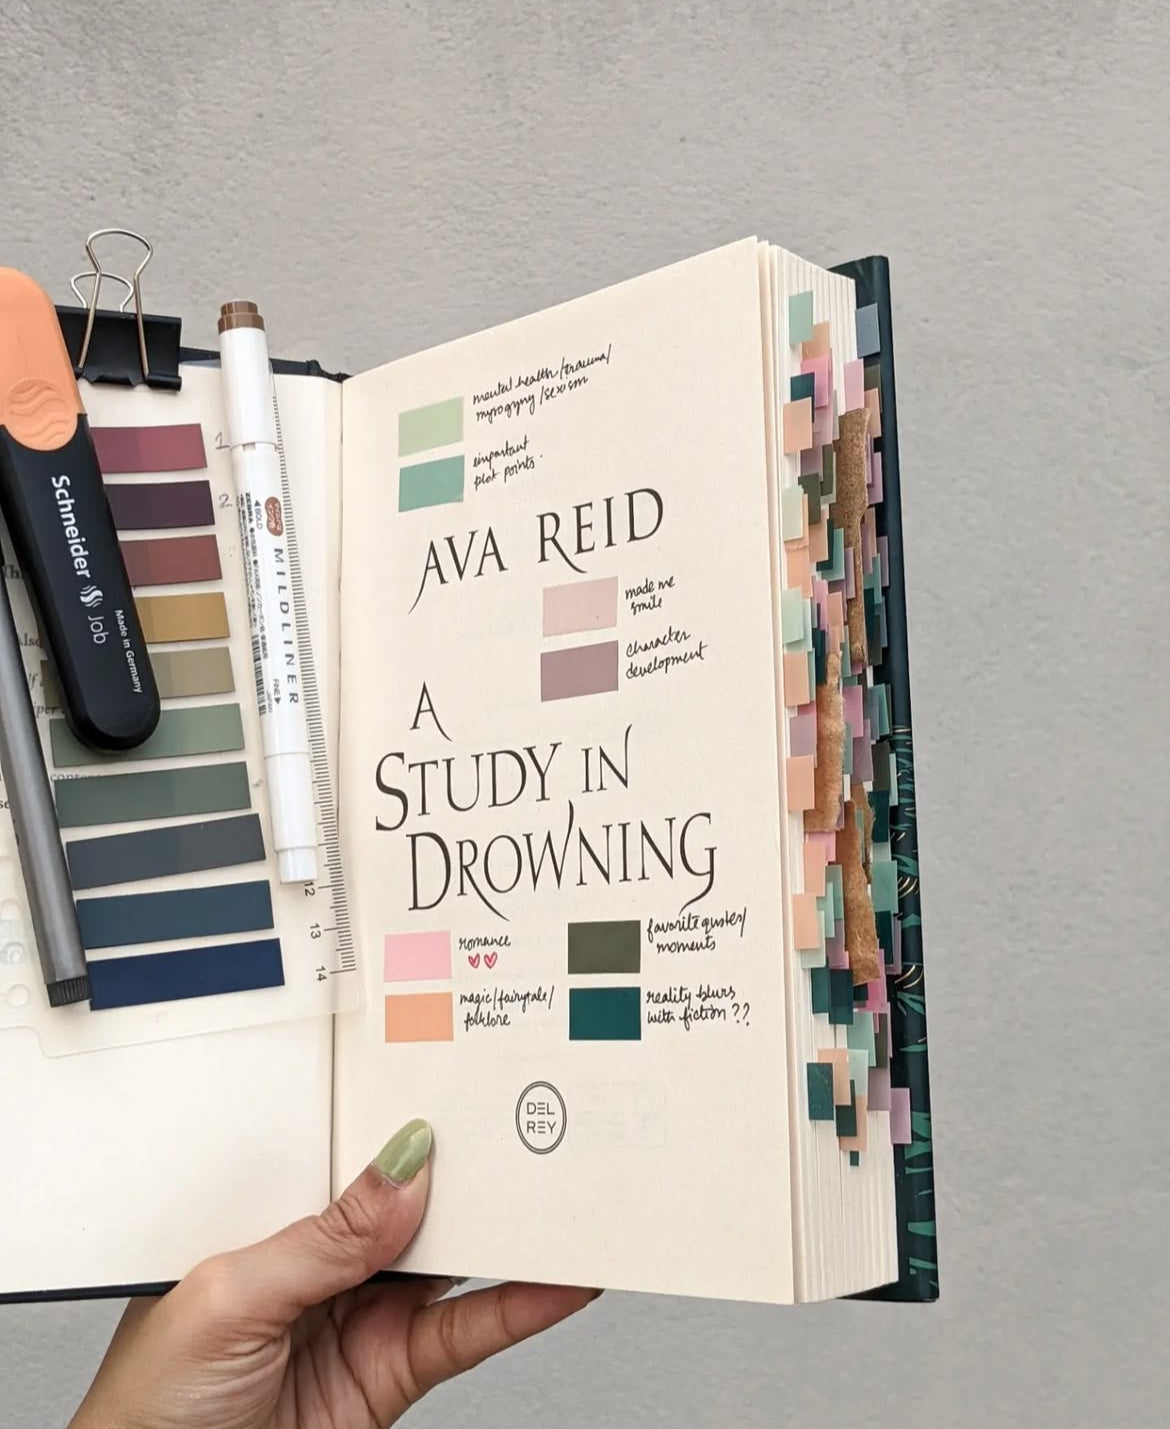 Schneider Job
Made in Germany
1
2
BOLD
MILDLINER
FINE
JAPAN
12
13
14
mental health/trauma/
mysogyny/sexism
important
plot points.
AVA REID
made me
smile
character
development
A
STUDY IN
DROWNING
romance
magic/fairytale/
folklore
favorite quotes/
moments
reality blurs
with fiction??
DEL
REY